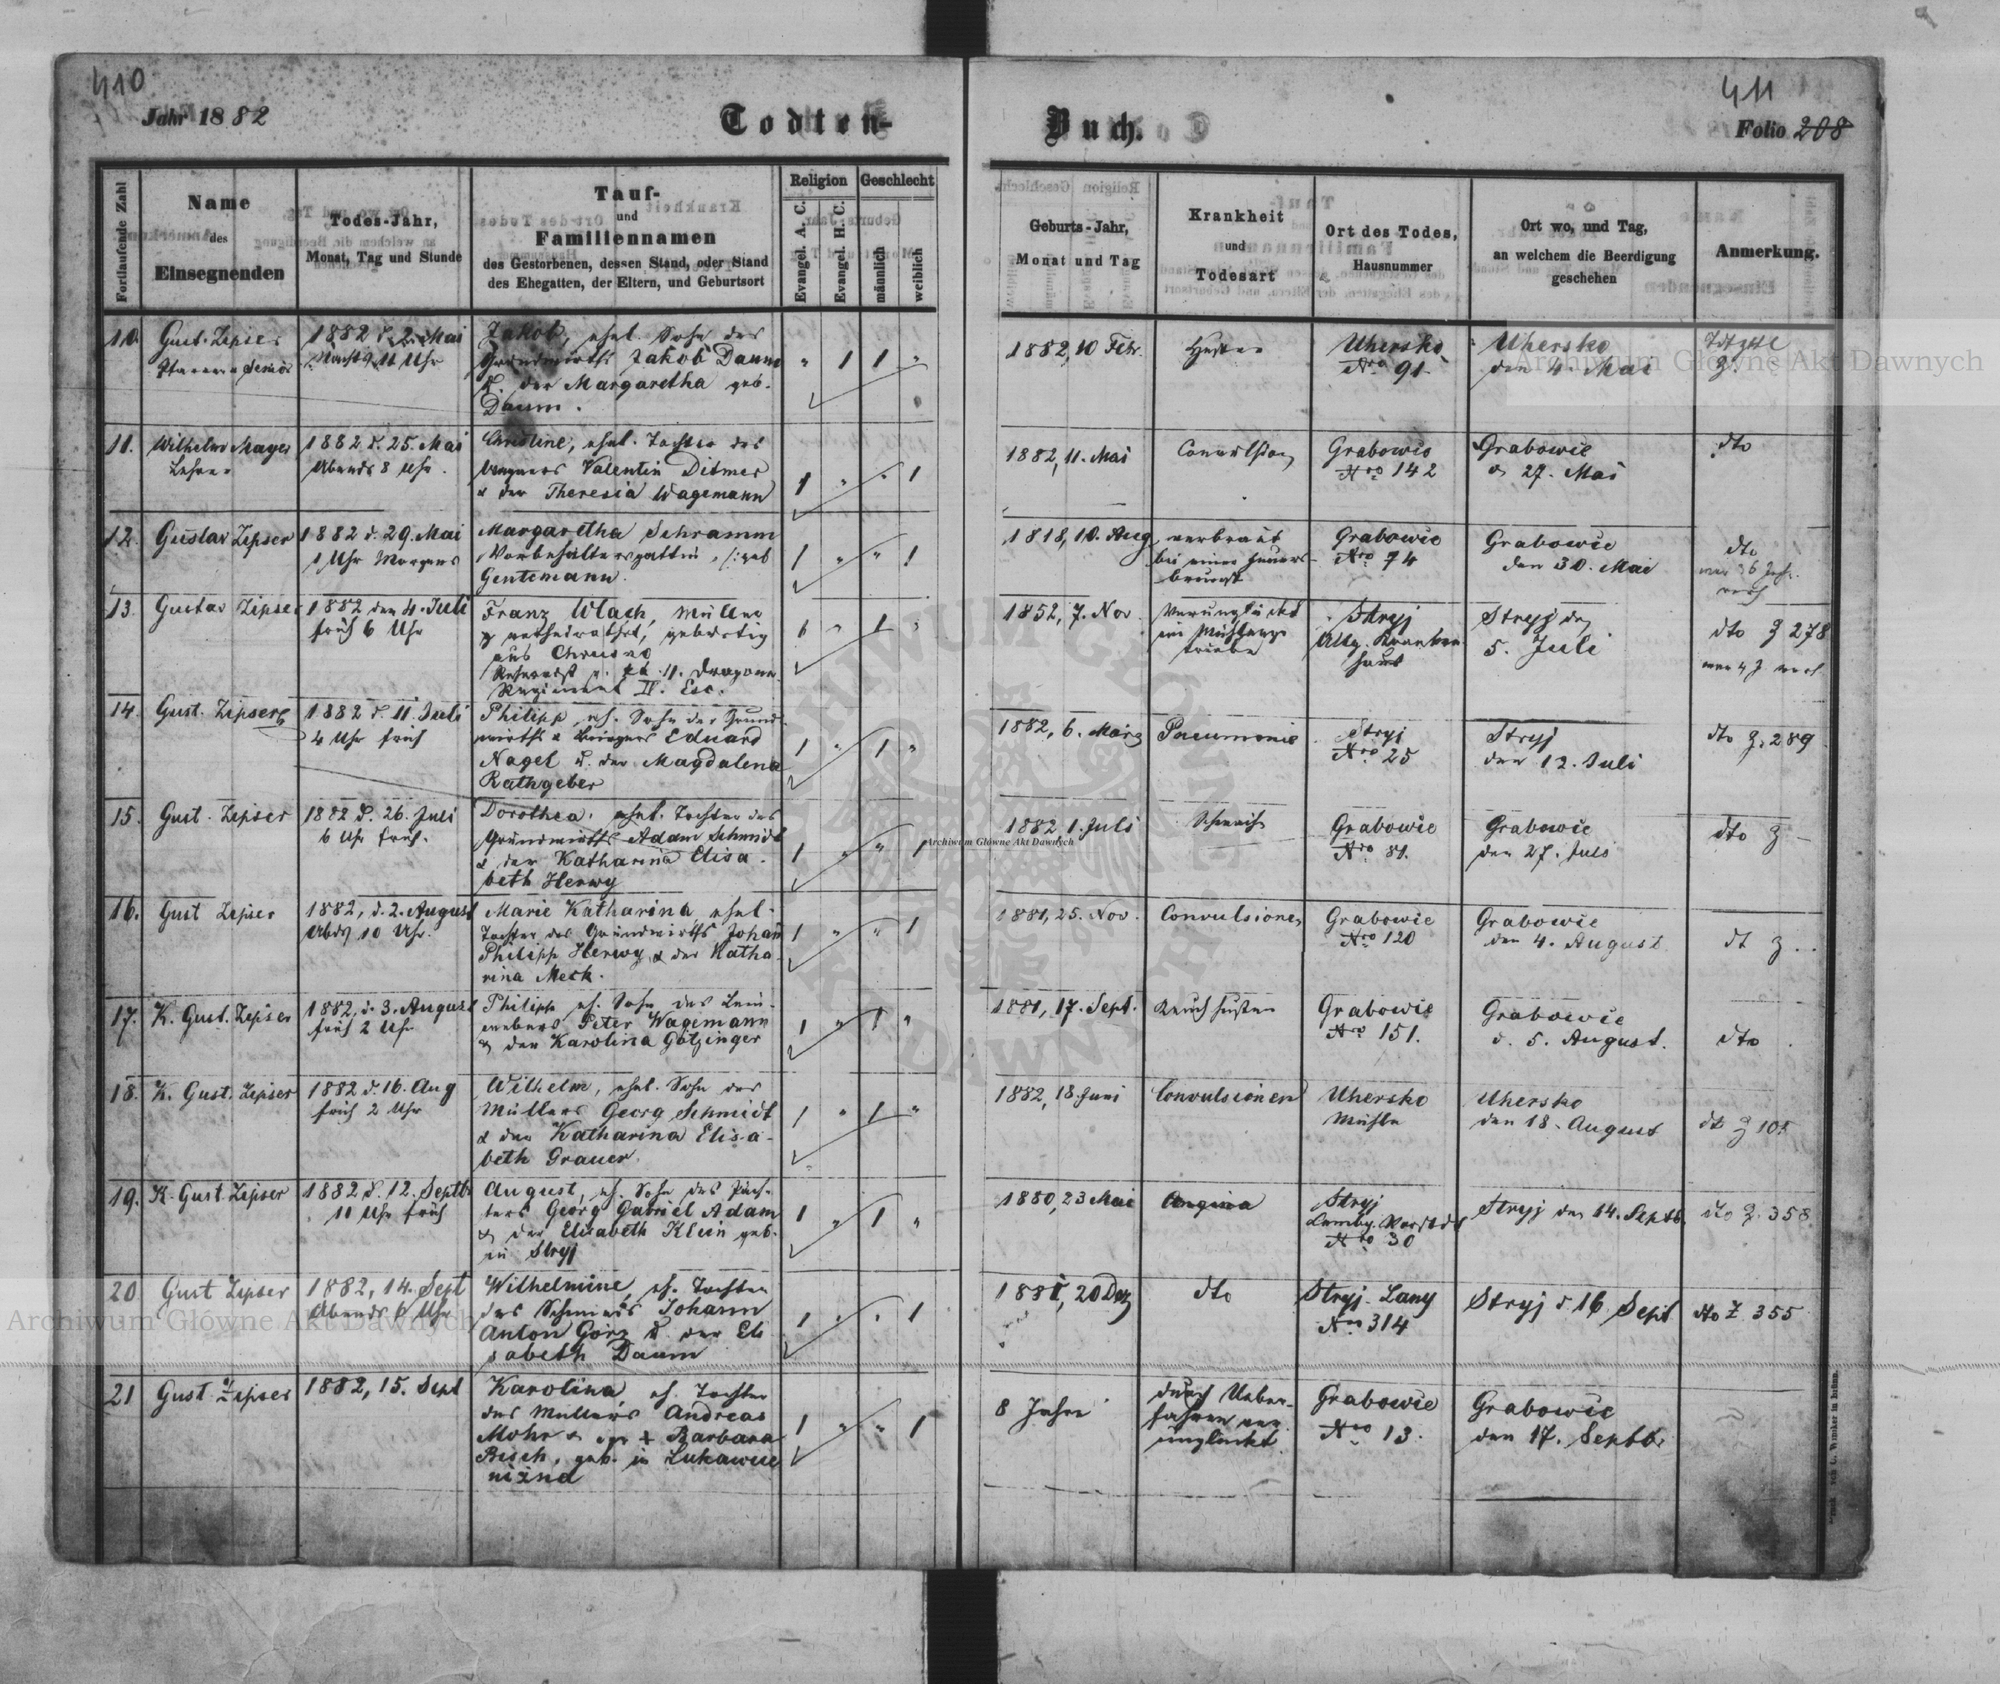 410
Jahr 1882
Todten-
Buch.
411
Folio 208
Fortlaufende Zahl
Name
des
Einsegnenden
Todes-Jahr,
Monat, Tag und Stunde
Tauf-
und
Familiennamen
des Gestorbenen, dessen Stand, oder Stand
des Ehegatten, der Eltern, und Geburtsort
Religion
Evangel. A. C.
Evangel. H. C.
Geschlecht
männlich
weiblich
Geburts-Jahr,
Monat und Tag
Krankheit
und
Todesart
Ort des Todes,
Hausnummer
Ort wo, und Tag,
an welchem die Beerdigung
geschehen
Anmerkung.
10. Gust. Zipser
Senior
1882 d. 2. Mai
Nachts 11 Uhr
Jakob, ehel. Sohn des
Grundwirths Jakob Daum
u. der Margaretha geb.
Daum.
" 1 1 "
1882, 10 Febr.
Husten
Uhersko
Nro 91
Uhersko
den 4. Mai
11. Wilhelm Mayer
Lehrer
1882 d. 25. Mai
Abends 8 Uhr.
Christine, ehel. Tochter des
Wagners Valentin Ditmer
& der Theresia Wagemann
1 " " 1
1882, 11. Mai
Convulsion
Grabowie
Nro 142
Grabowie
d. 27. Mai
dto
12. Gustav Zipser
1882 d. 29. Mai
1 Uhr Morgens
Margaretha Schramm
Vorbehaltersgattin, /: geb
Gentemann.
1 " " 1
1818, 10. Aug
verbrannt
bei einer Feuers-
brunst
Grabowie
Nro 74
Grabowie
den 30. Mai
dto
13. Gustav Zipser
1882 den 4. Juli
früh 6 Uhr
Franz Wlach, Müller
verheirathet, gebürtig
aus
11. Dragoner
Regiment II. Esc.
1 " 1 "
1852, 7. Nov.
Verunglückt
im Mühlenge-
triebe
Stryj
Allg. Kranken
haus
Stryj den
5. Juli
dto Z 278
14. Gust. Zipser
1882 d. 11. Juli
4 Uhr früh
Philipp, eh. Sohn des Grund-
wirths & Bürgers Eduard
Nagel u. der Magdalena
Rathgeber
1 " 1 "
1882, 6. März
Pneumonie
Stryj
Nro 25
Stryj
den 12. Juli
dto Z. 289
15. Gust. Zipser
1882 d. 26. Juli
6 Uhr früh.
Dorothea, ehel. Tochter des
Grundwirths Adam Schmidt
& der Katharina Elisa-
beth Herwy
1 " " 1
1882, 1. Juli
Grabowie
Nro 81.
Grabowie
den 27. Juli
dto Z –
16. Gust Zipser
1882, d. 2. August
Abds 10 Uhr.
Marie Katharina, ehel.
Tochter des Grundwirths Johan
Philipp Herwy & der Katha-
rina Meck.
1 " " 1
1881, 25. Nov.
Convulsionen
Grabowie
Nro 120
Grabowie
den 4. August
dt Z ...
17. K. Gust. Zipser
1882, d. 3. August
früh 2 Uhr
Philipp eh. Sohn des Lein-
webers Peter Wagemann
& der Karolina Götzinger
1 " 1 "
1881, 17. Sept.
Keuchhusten
Grabowie
Nro 151.
Grabowie
d. 5. August.
dto
18. K. Gust. Zipser
1882 d. 16. Aug
früh 2 Uhr
Wilhelm, ehel. Sohn des
Müllers Georg Schmidt
& der Katharina Elisa-
beth Grauer.
1 " 1 "
1882, 18. Juni
Convulsionen
Uhersko
Mühle
Uhersko
den 18. August
19. K. Gust. Zipser
1882 d. 12. Septb
11 Uhr früh
August, eh. Sohn des Päch-
ters Georg Gabriel Adam
& der Elisabeth Klein geb.
in Stryj
1 " 1 "
1880, 23 Mai
Angina
Stryj
Lemby. Vorstdt
Nro 30
Stryj den 14. Septb.
dto Z. 358
20 Gust Zipser
1882, 14. Sept
Abends 6 Uhr
Wilhelmine, eh. Tochter
des Schmieds Johann
Anton Görz u. der Eli
sabeth Daum
1 " " 1
1881, 20 Dez
dto
Stryj-Lany
Nro 314
Stryj d. 16. Sept
dto Z 355
21 Gust. Zipser
1882, 15. Sept
Karolina eh. Tochter
des Müllers Andreas
Mohr & der + Barbara
Resch, geb. in Lukawice
niżna
1 " " 1
8 Jahre
durch Ueber-
fahren ver
unglückt
Grabowie
Nro 13.
Grabowie
den 17. Septb.
Archiwum Główne Akt Dawnych
Archiwum Główne Akt Dawnych
Archiwum Główne Akt Dawnych